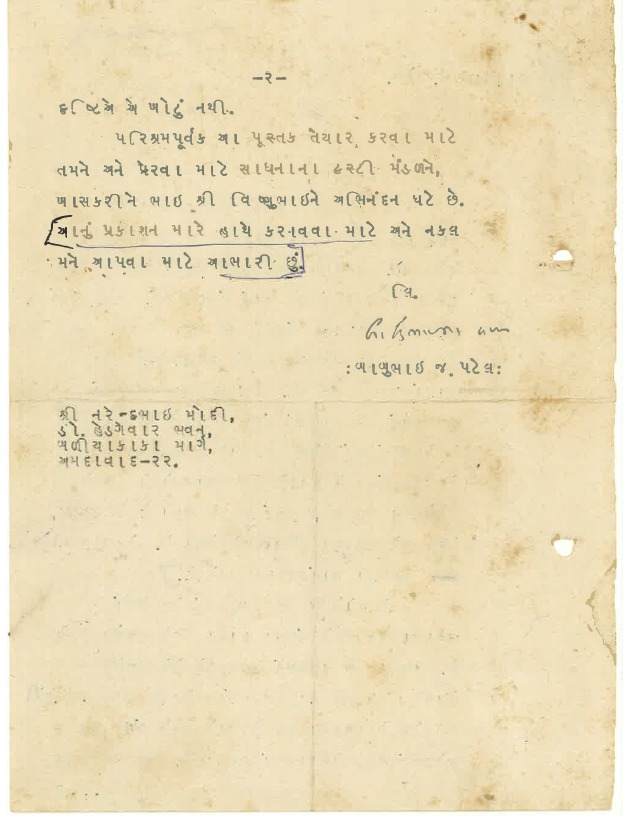 -૨-
દ્રષ્ટિએ એ ખોટું નથી.
પરિશ્રમપૂર્વક આ પૂસ્તક તૈયાર કરવા માટે
તમને અને પ્રેરવા માટે સાધનાના ટ્રસ્ટી મંડળને,
ખાસકરીને ભાઇ શ્રી વિષ્ણુભાઇને અભિનંદન ઘટે છે.
આનું પ્રકાશન મારે હાથે કરાવવા માટે અને નકલ
મને આપવા માટે આભારી છું.
લિ.
:બાબુભાઇ જ. પટેલ:
શ્રી નરેન્દ્રભાઇ મોદી,
ડો. હેડગેવાર ભવન,
બળીયાકાકા માર્ગ,
અમદાવાદ-૨૨.